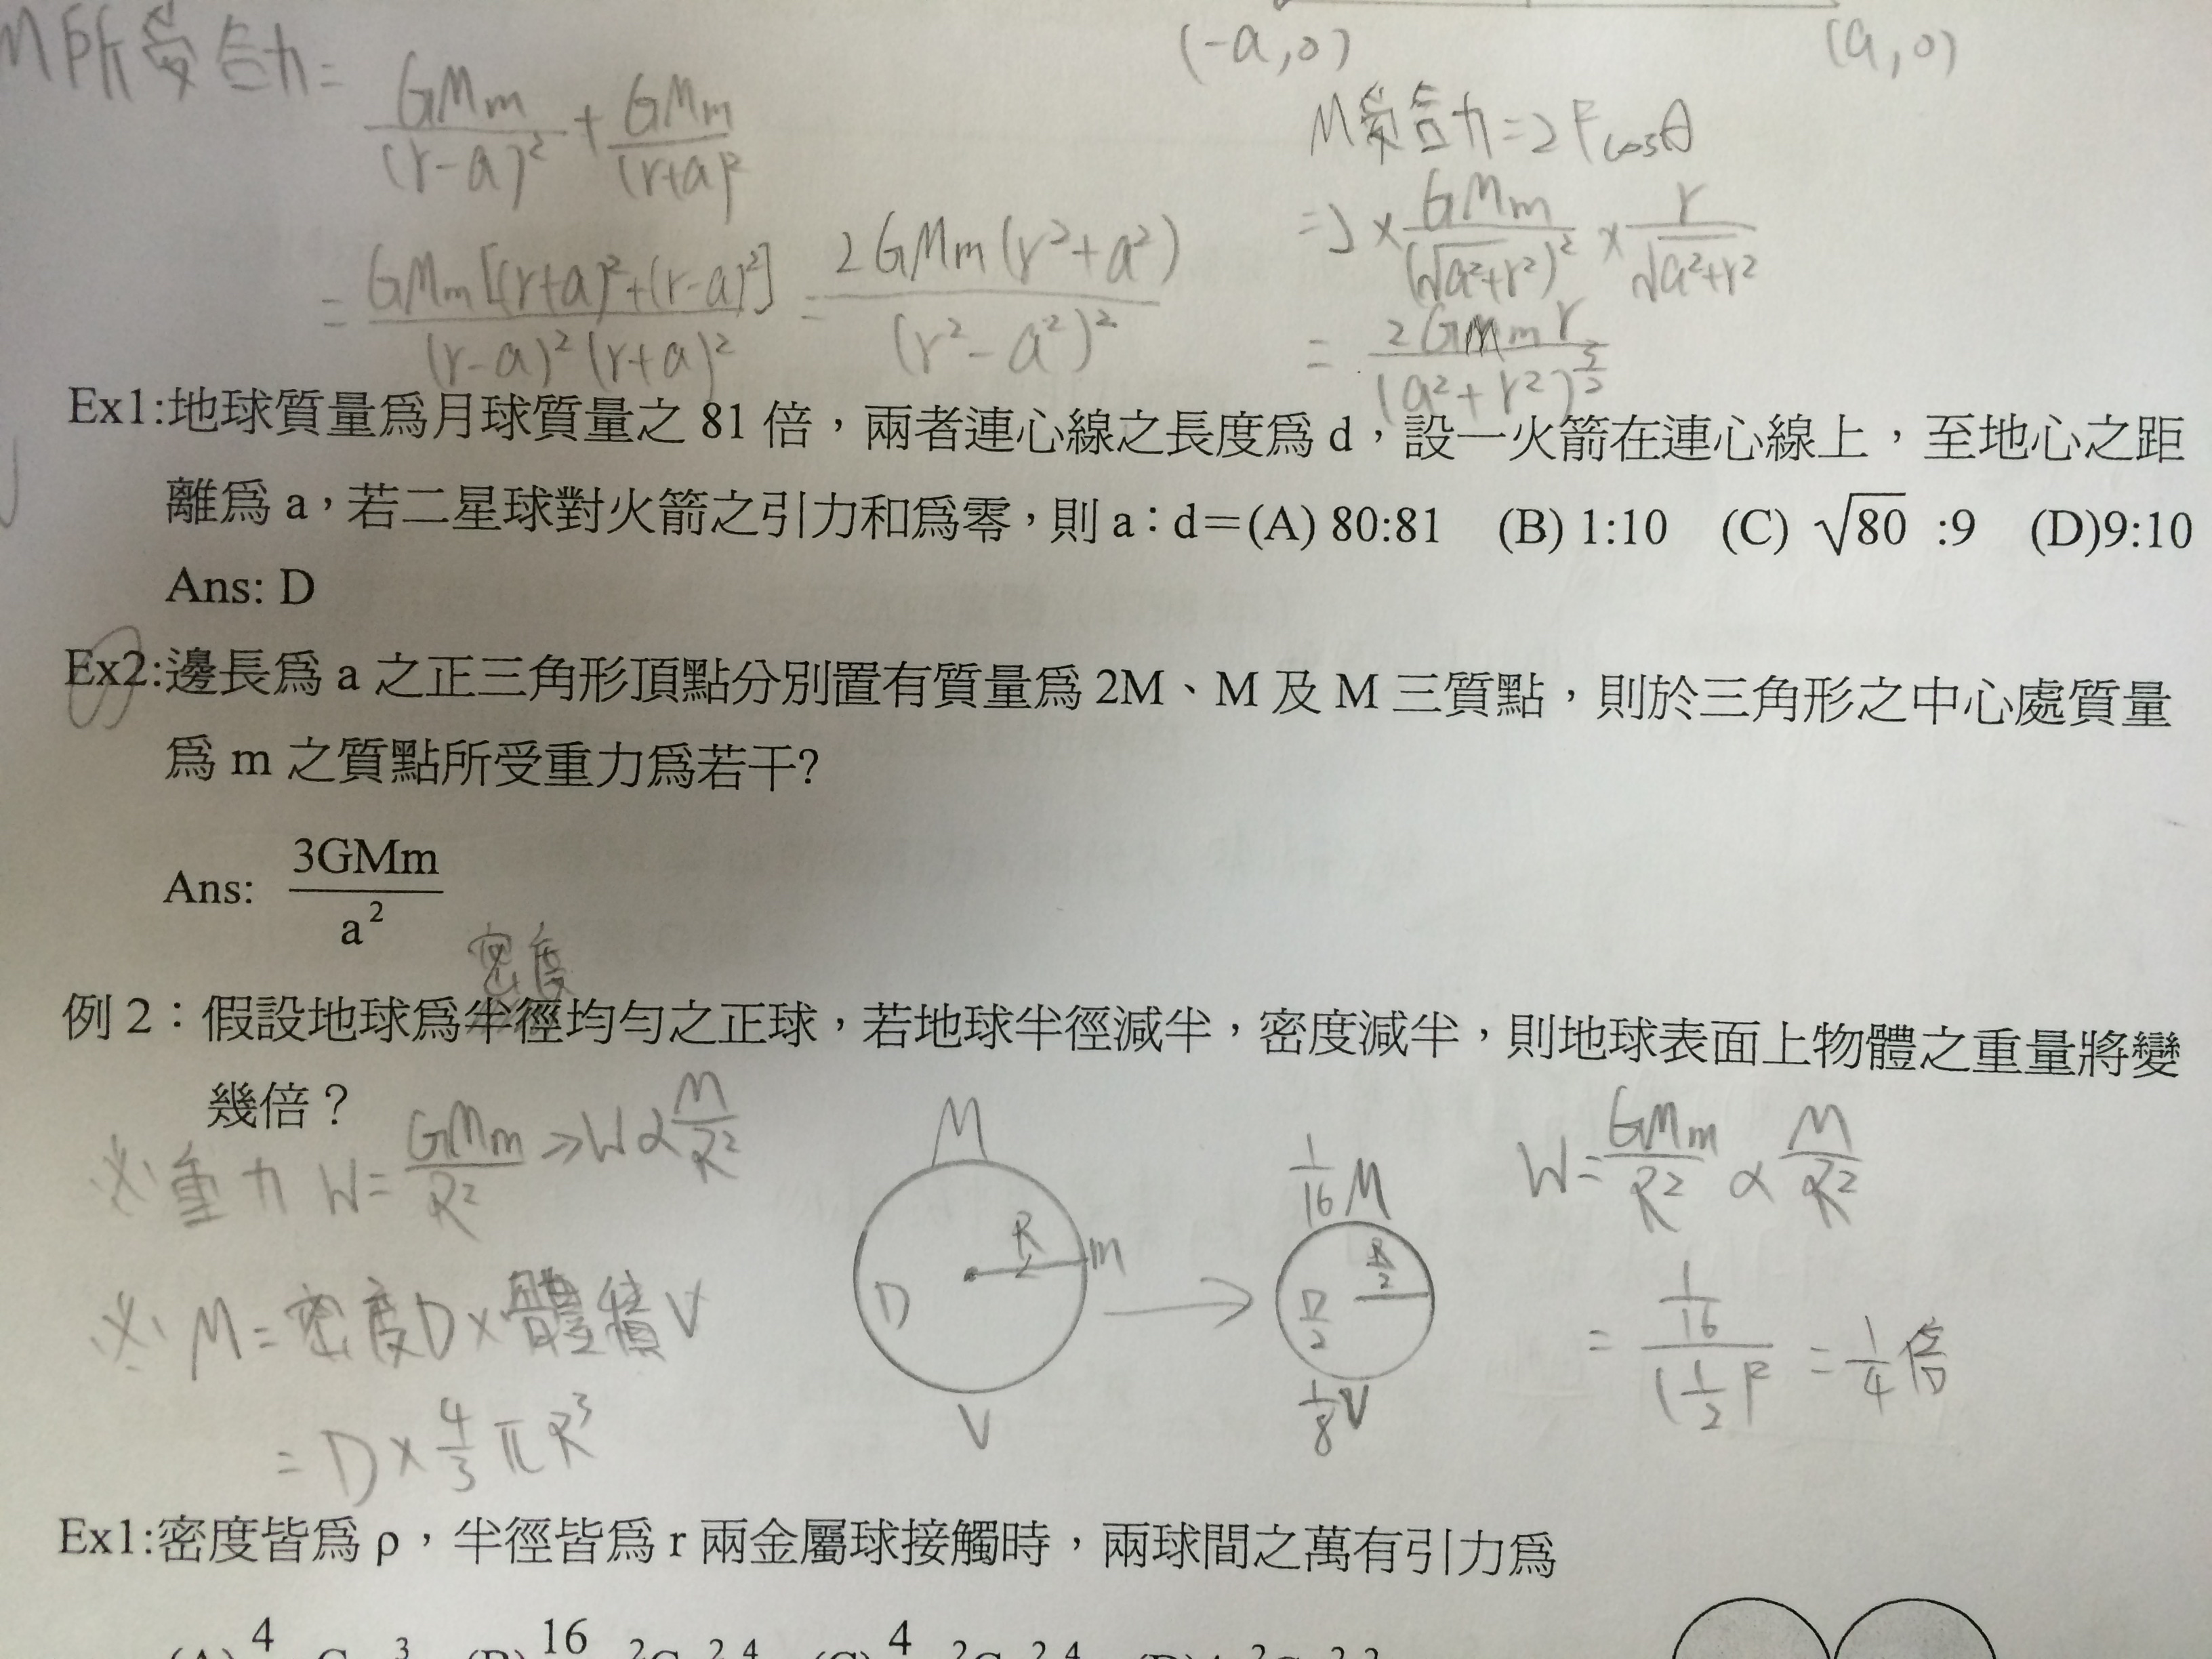 M所受合力= GMm/(r-a)² + GMm/(r+a)²
= GMm[(r+a)²+(r-a)²]/(r-a)²(r+a)² = 2GMm(r²+a²)/(r²-a²)²
(-a,0) (a,0)
M受合力=2Fcosθ
=2×GMm/(√a²+r²)²×r/√a²+r²
= 2GMmr/(a²+r²)^3/2
Ex1:地球質量為月球質量之 81 倍，兩者連心線之長度為 d，設一火箭在連心線上，至地心之距
離為 a，若二星球對火箭之引力和為零，則 a：d＝(A) 80:81 (B) 1:10 (C) √80 :9 (D)9:10
Ans: D
Ex2:邊長為 a 之正三角形頂點分別置有質量為 2M、M 及 M 三質點，則於三角形之中心處質量
為 m 之質點所受重力為若干?
Ans: 3GMm/a²
密度
例 2：假設地球為半徑均勻之正球，若地球半徑減半，密度減半，則地球表面上物體之重量將變
幾倍？
※重力 W=GMm/R² ⇒W∝M/R²
※ M=密度D×體積V
= D×4/3πR³
M
R m
D
V
1/16M
R/2
D/2
1/8V
W=GMm/R² ∝ M/R²
= 1/16/(1/2)² = 1/4倍
Ex1:密度皆為 ρ，半徑皆為 r 兩金屬球接觸時，兩球間之萬有引力為